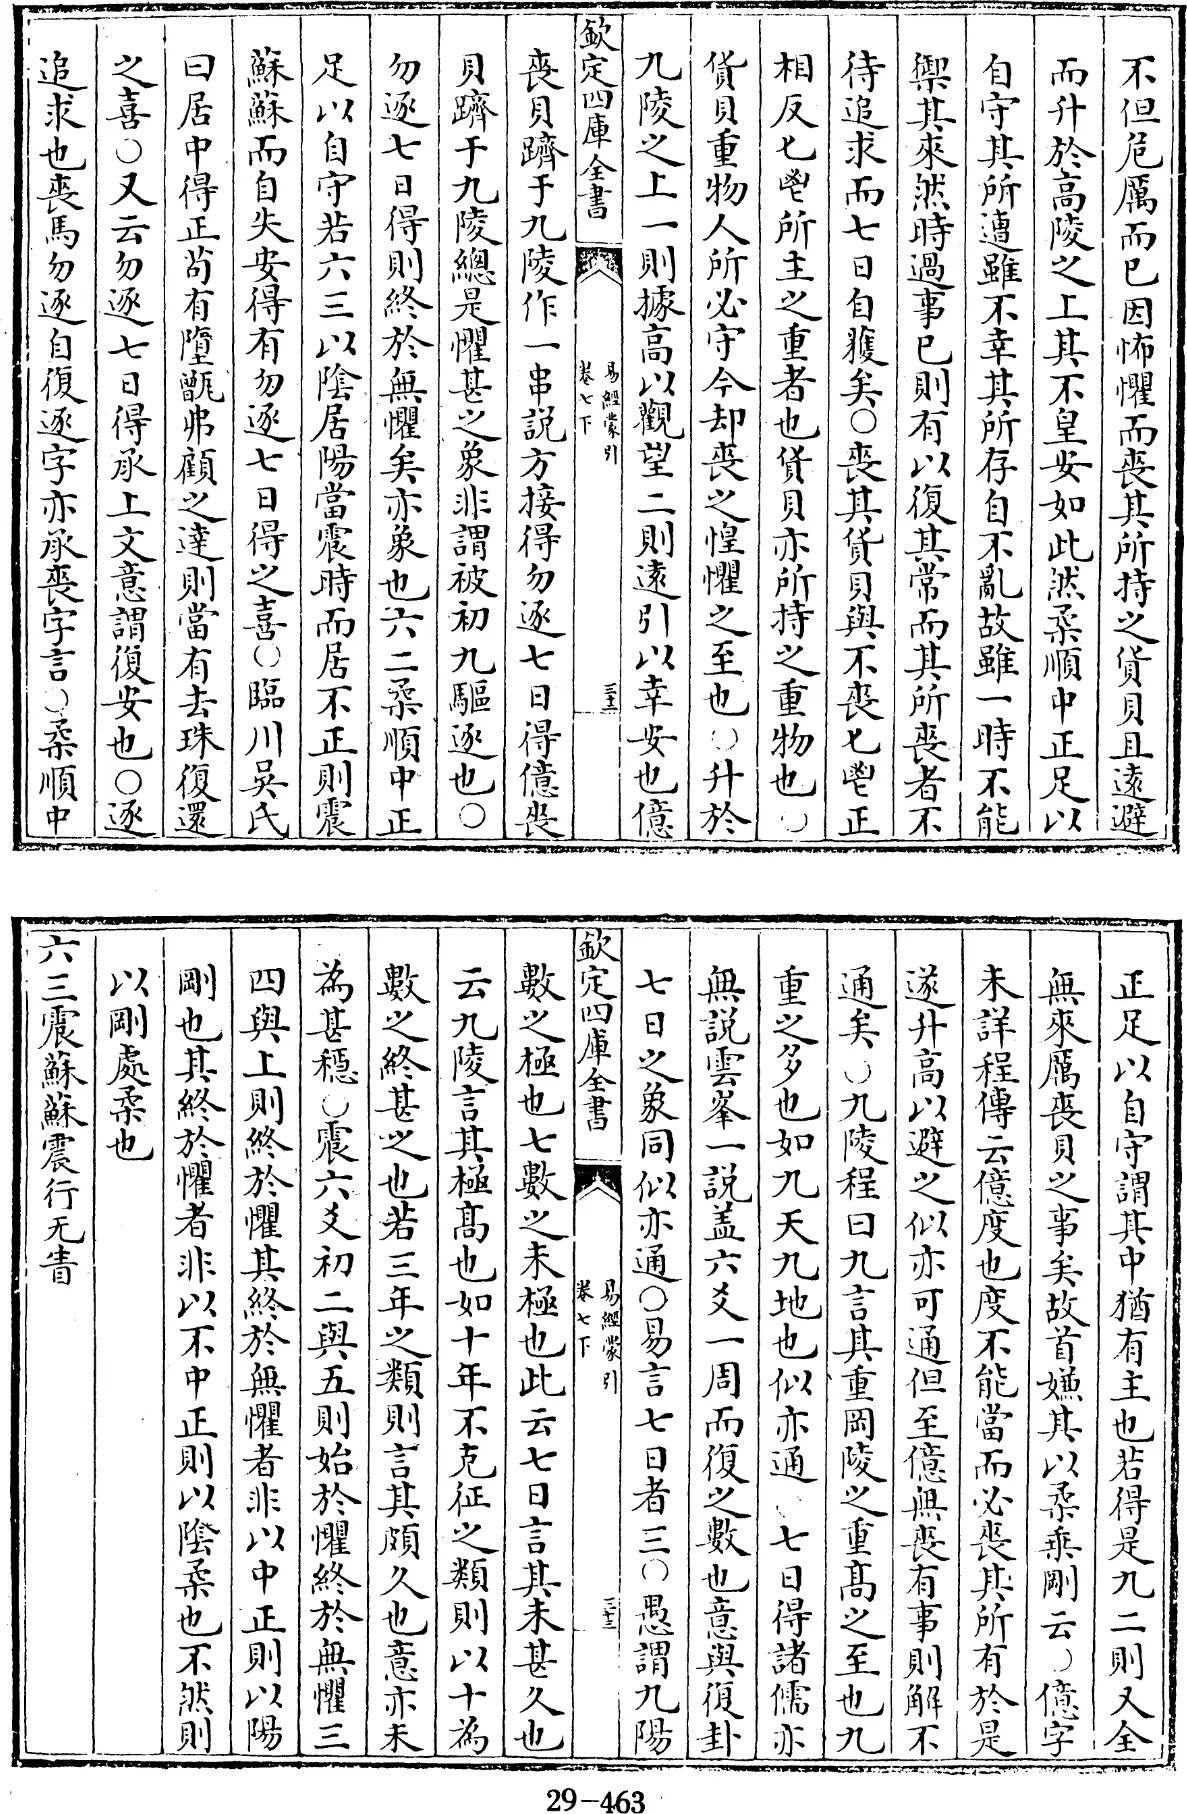 不但危厲而已因怖懼而喪其所持之貨貝且遠避
而升於高陵之上其不皇安如此然柔順中正足以
自守其所遭雖不幸其所存自不亂故雖一時不能
禦其來然時過事已則有以復其常而其所喪者不
待追求而七日自獲矣○喪其貨貝與不喪匕鬯正
相反匕鬯所主之重者也貨貝亦所持之重物也○
貨貝重物人所必守今却喪之惶懼之至也○升於
九陵之上一則據高以觀望二則遠引以幸安也億
欽定四庫全書
易經蒙引
卷七下
三十二
喪貝躋于九陵作一串説方接得勿逐七日得億喪
貝躋于九陵總是懼甚之象非謂被初九驅逐也○
勿逐七日得則終於無懼矣亦象也六二柔順中正
足以自守若六三以陰居陽當震時而居不正則震
蘇蘇而自失安得有勿逐七日得之喜○臨川吳氏
曰居中得正苟有墮甑弗顧之達則當有去珠復還
之喜○又云勿逐七日得承上文意謂復安也○逐
追求也喪馬勿逐自復逐字亦承喪字言○柔順中
正足以自守謂其中猶有主也若得是九二則又全
無來厲喪貝之事矣故首嫌其以柔乗剛云○億字
未詳程傳云億度也度不能當而必喪其所有於是
遂升高以避之似亦可通但至億無喪有事則解不
通矣○九陵程曰九言其重岡陵之重髙之至也九
重之多也如九天九地也似亦通○七日得諸儒亦
無説雲峯一説盖六爻一周而復之數也意與復卦
七日之象同似亦通○易言七日者三○愚謂九陽
欽定四庫全書
易經蒙引
卷七下
三十三
數之極也七數之未極也此云七日言其未甚久也
云九陵言其極髙也如十年不克征之類則以十為
數之終甚之也若三年之類則言其頗久也意亦未
為甚穩○震六爻初二與五則始於懼終於無懼三
四與上則終於懼其終於無懼者非以中正則以陽
剛也其終於懼者非以不中正則以陰柔也不然則
以剛處柔也
六三震蘇蘇震行无眚
29-463